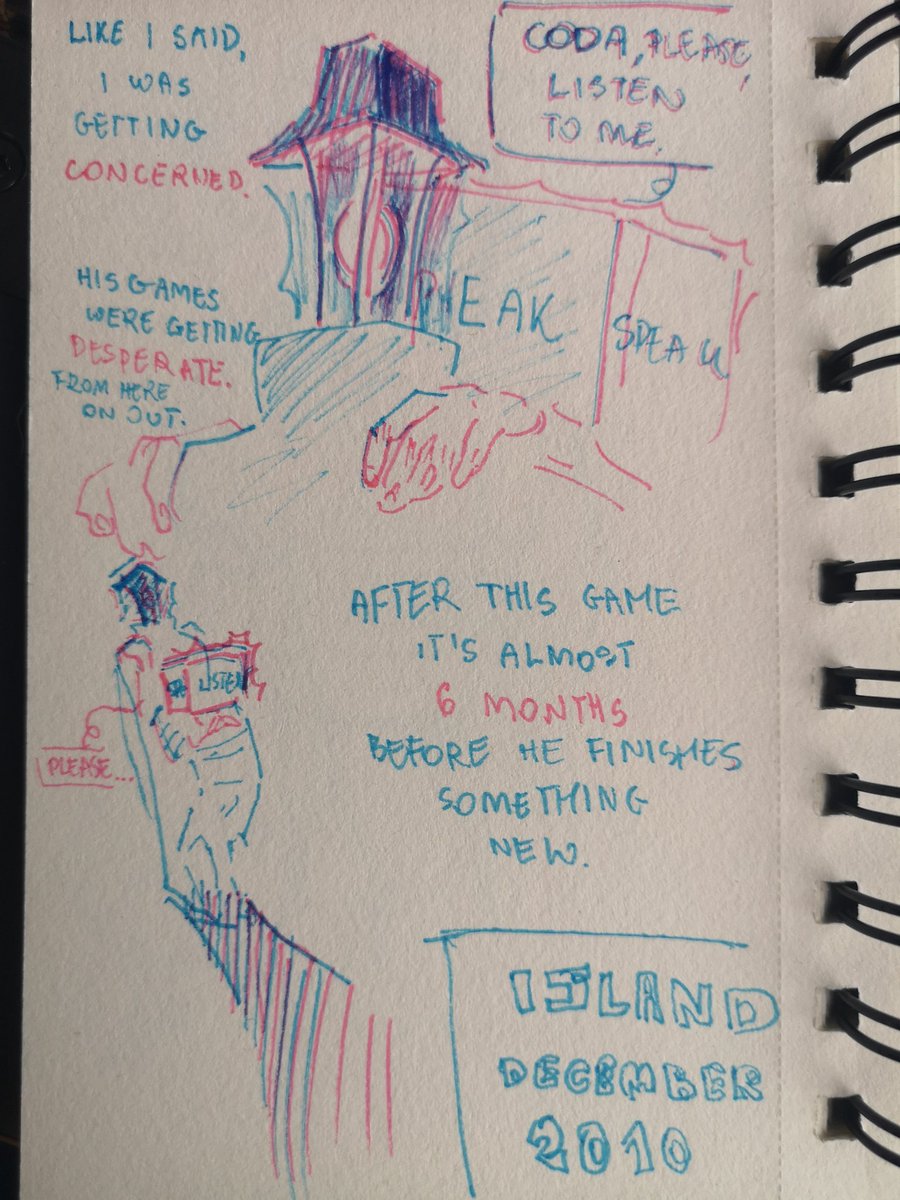 LIKE I SAID,
I WAS
GETTING
CONCERNED.
CODA, PLEASE,
LISTEN
TO ME.
HIS GAMES
WERE GETTING
DESPERATE.
FROM HERE
ON OUT.
SPEAK
LISTEN
PLEASE...
AFTER THIS GAME
IT'S ALMOST
6 MONTHS
BEFORE HE FINISHES
SOMETHING
NEW.
ISLAND
DECEMBER
2010